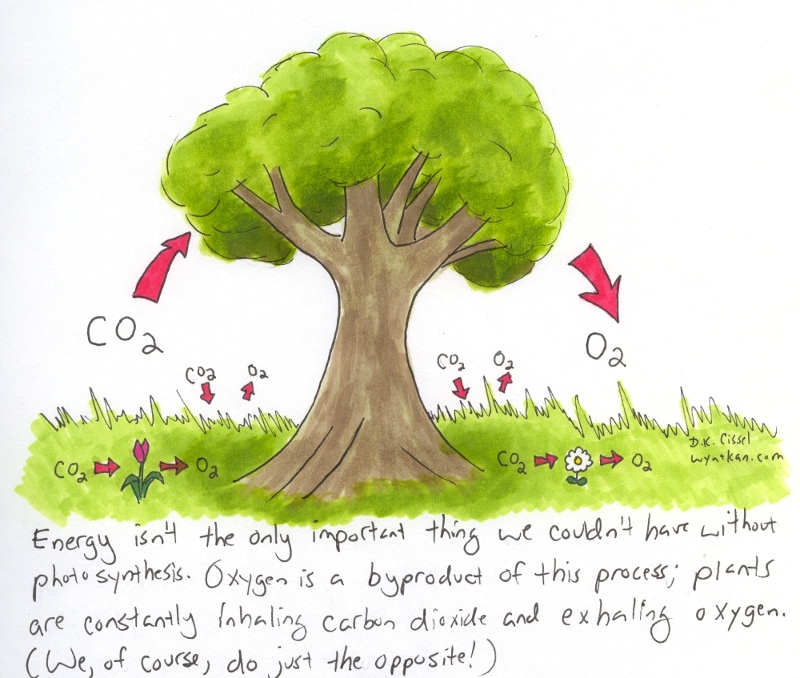 CO2
O2
CO2
O2
CO2
O2
CO2
O2
CO2
O2
D.K. Cissel
wyntkan.com
Energy isn't the only important thing we couldn't have without
photosynthesis. Oxygen is a byproduct of this process; plants
are constantly inhaling carbon dioxide and exhaling oxygen.
(We, of course, do just the opposite!)